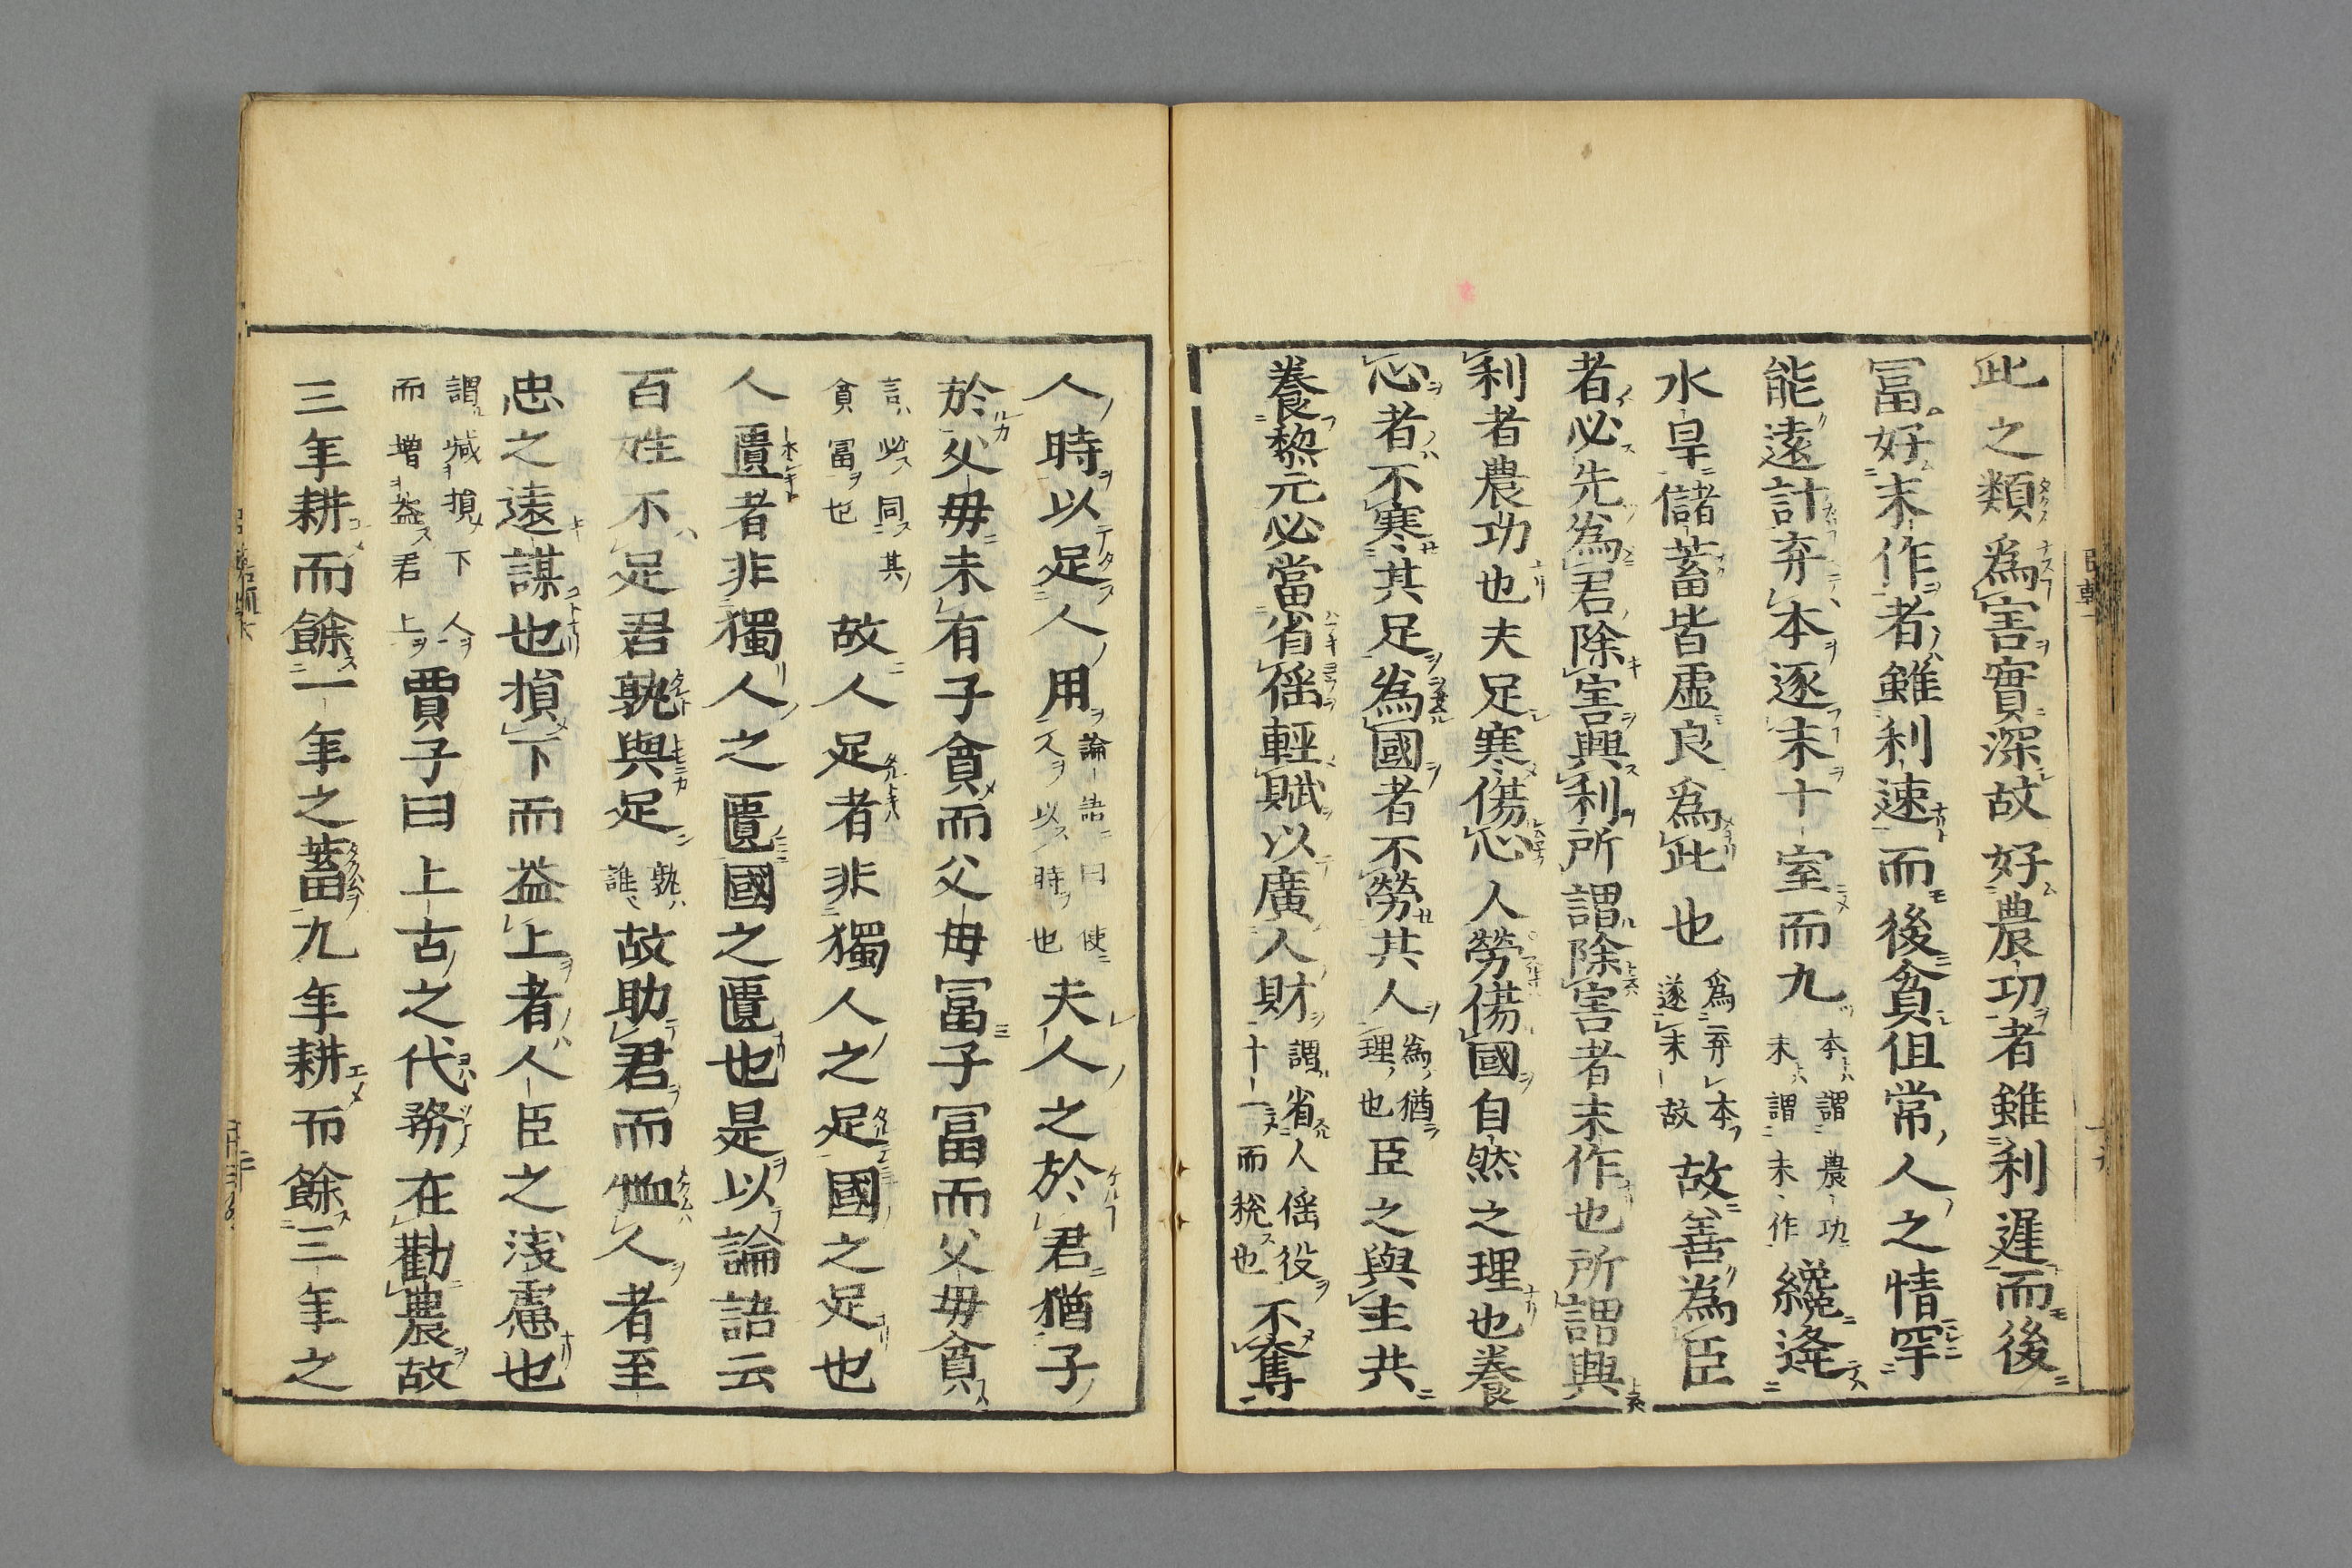 此之類為害實深故好農功者雖利遲而後
冨好末作者雖利速而後貧但常人之情罕
能遠計弃本逐末十室而九本謂農功末謂末作纔逢
水旱儲蓄皆虛良為此也為弃本遂末故故善為臣
者必先為君除害興利所謂除害者末作也所謂興
利者農功也夫足寒傷心人勞傷國自然之理也養
心者不寒其足為國者不勞其人為猶理也臣之與主共
養黎元必當省徭輕賦以廣人財謂省人徭役十一而稅也不奪
人時以足人用論語曰使人以時也夫人之於君猶子
於父母未有子貧而父母冨子冨而父母貧
言必同其貧冨也故人足者非獨人之足國之足也
人匱者非獨人之匱國之匱也是以論語云
百姓不足君孰與足孰誰故助君而恤人者至
忠之遠謀也損下而益上者人臣之淺慮也
謂減損下人而增益君上賈子曰上古之代務在勸農故
三年耕而餘一年之蓄九年耕而餘三年之